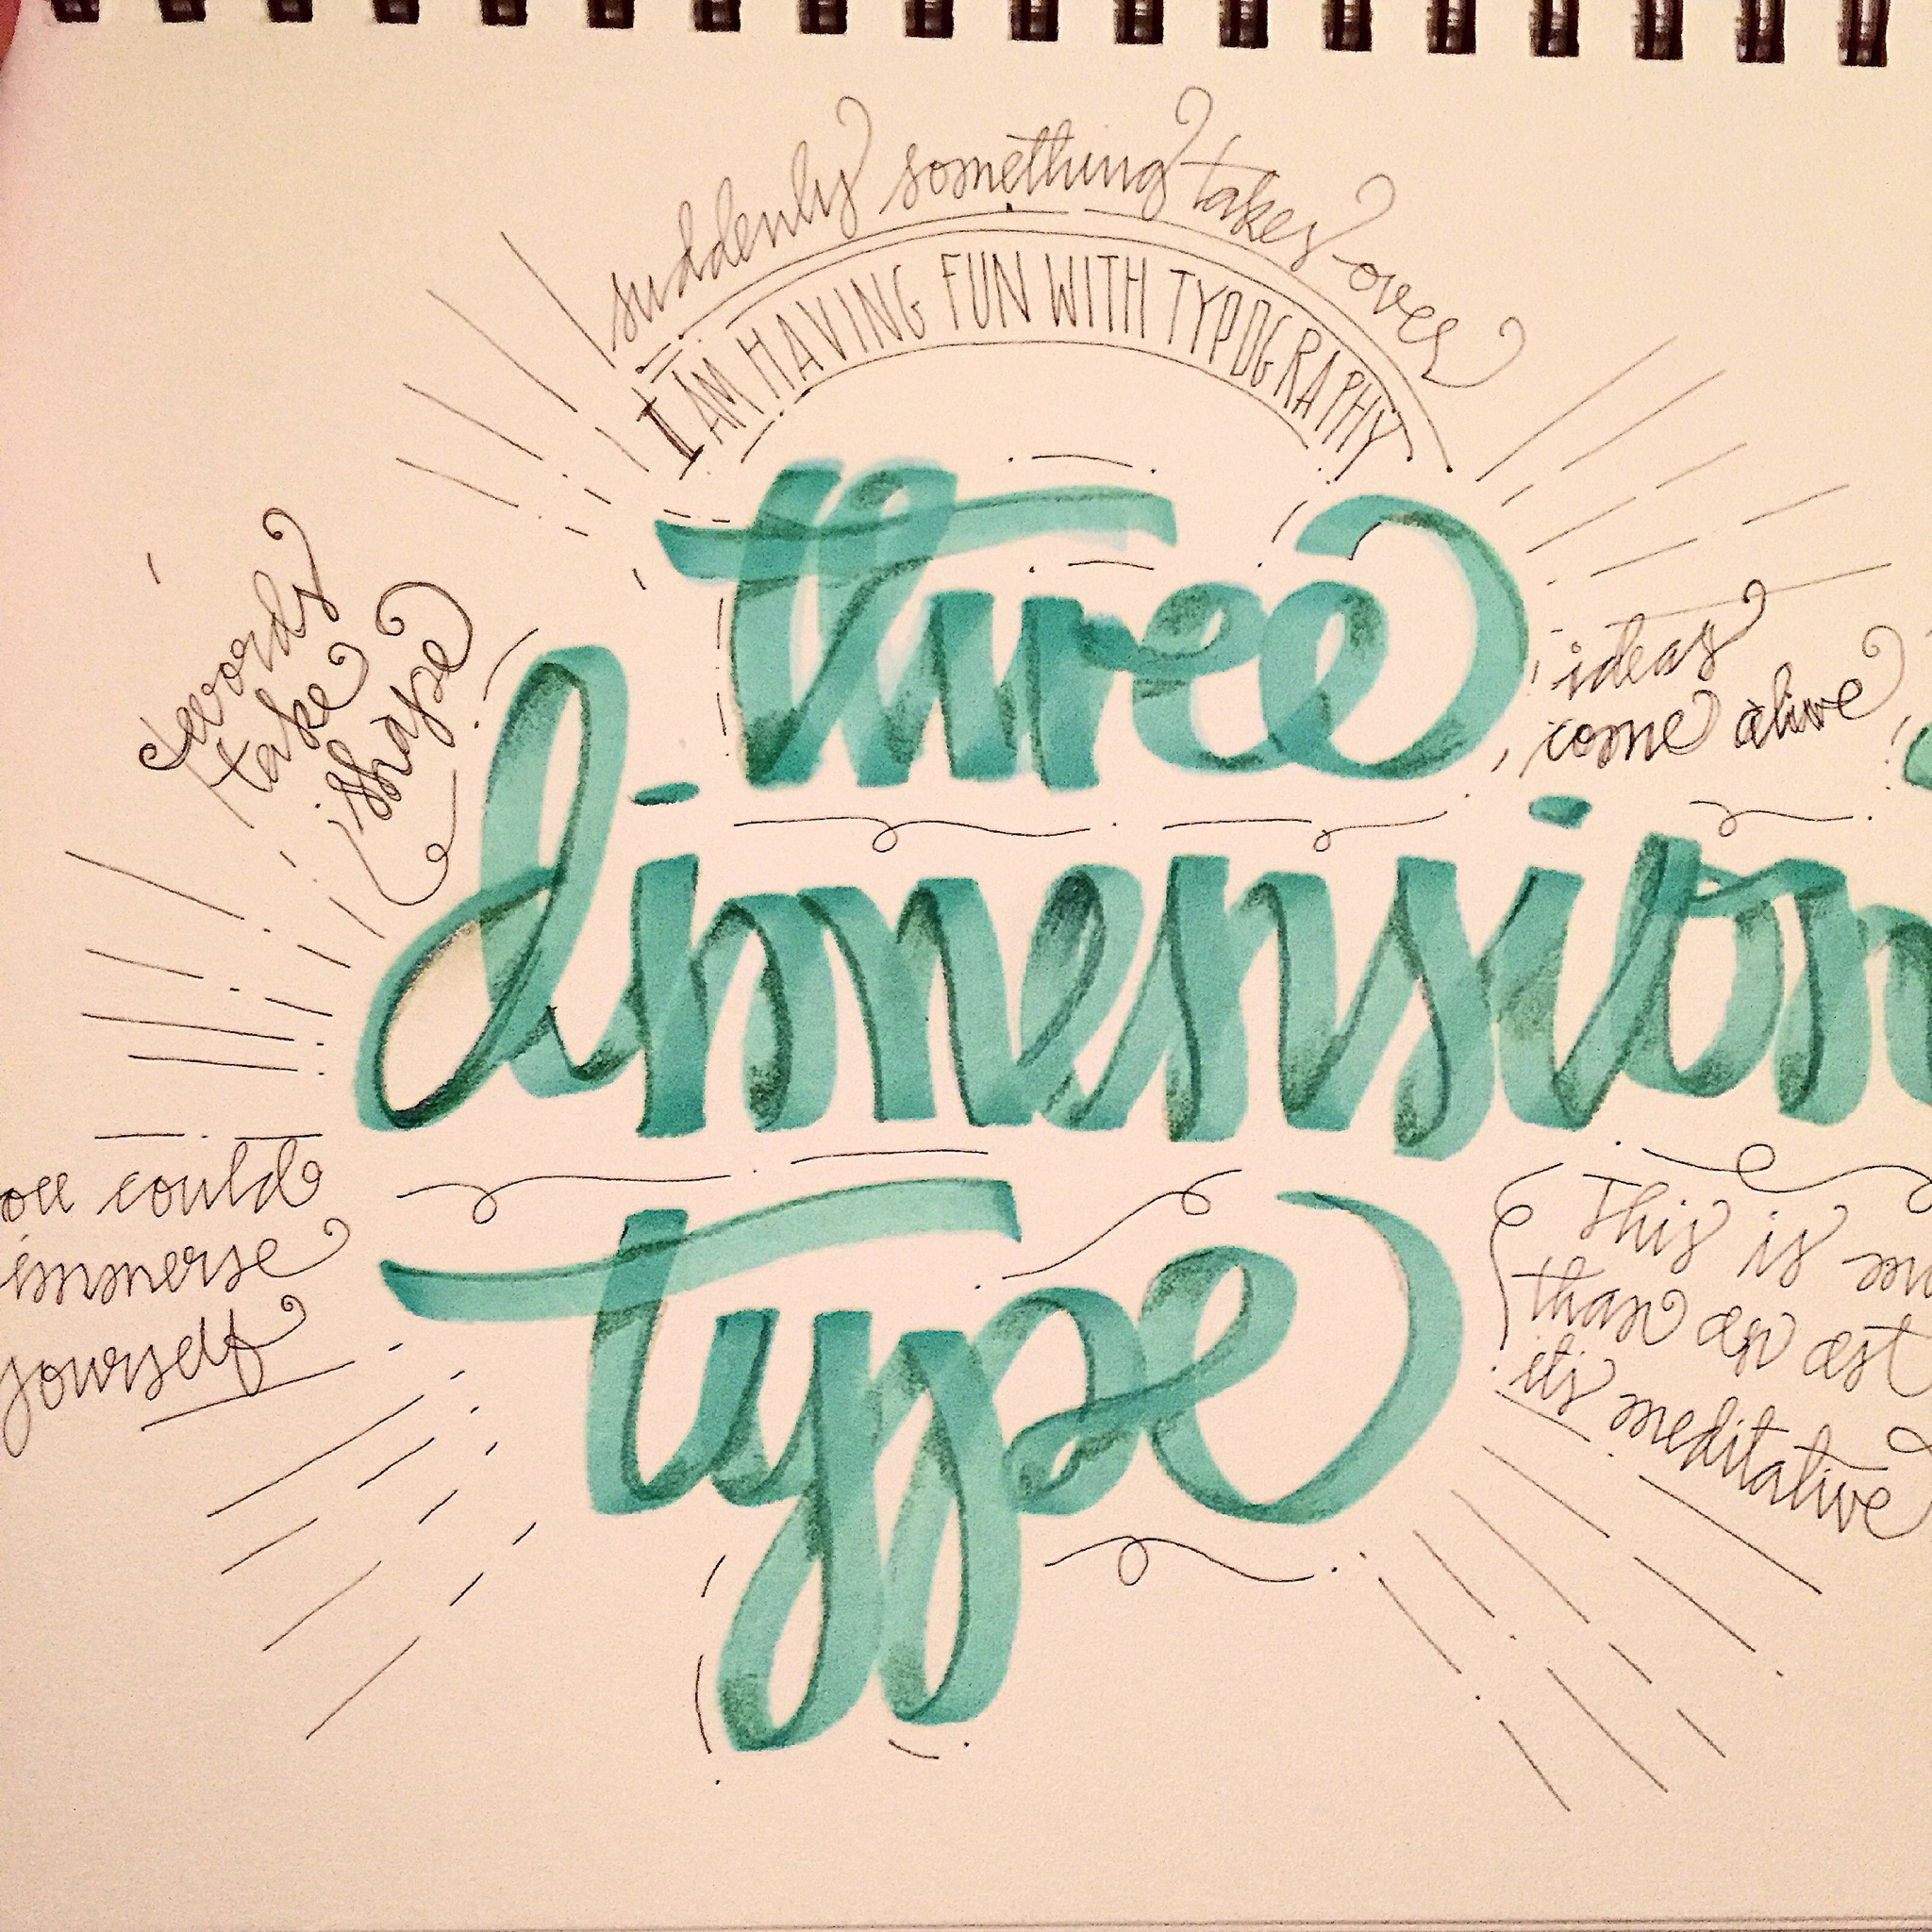 suddenly something takes over
I AM HAVING FUN WITH TYPOGRAPHY
three
dimension
type
words
take
shape
ideas
come alive
ou could
immerse
yourself
This is
than an art
its meditative